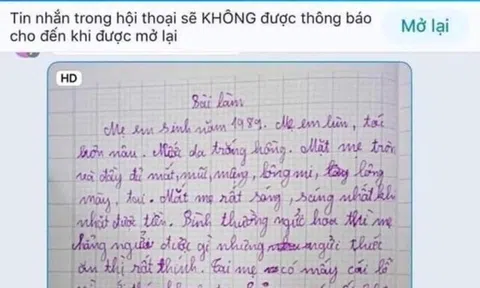 Tin nhắn trong hội thoại sẽ KHÔNG được thông báo
cho đến khi được mở lại
Mở lại
HD
Bài làm
Mẹ em sinh năm 1989. Mẹ em lùn, tóc
hơn nâu. Màu da trắng hồng. Mặt mẹ tròn
và đầy đủ mắt, mũi, miệng, lông mi, lông
mày, tai. Mắt mẹ rất sáng, sáng nhất khi
nhặt được tiền. Bình thường ngửi hoa thì mẹ
chẳng ngửi được gì nhưng ngửi thức
ăn thì rất thính. Tai mẹ có mấy cái lỗ